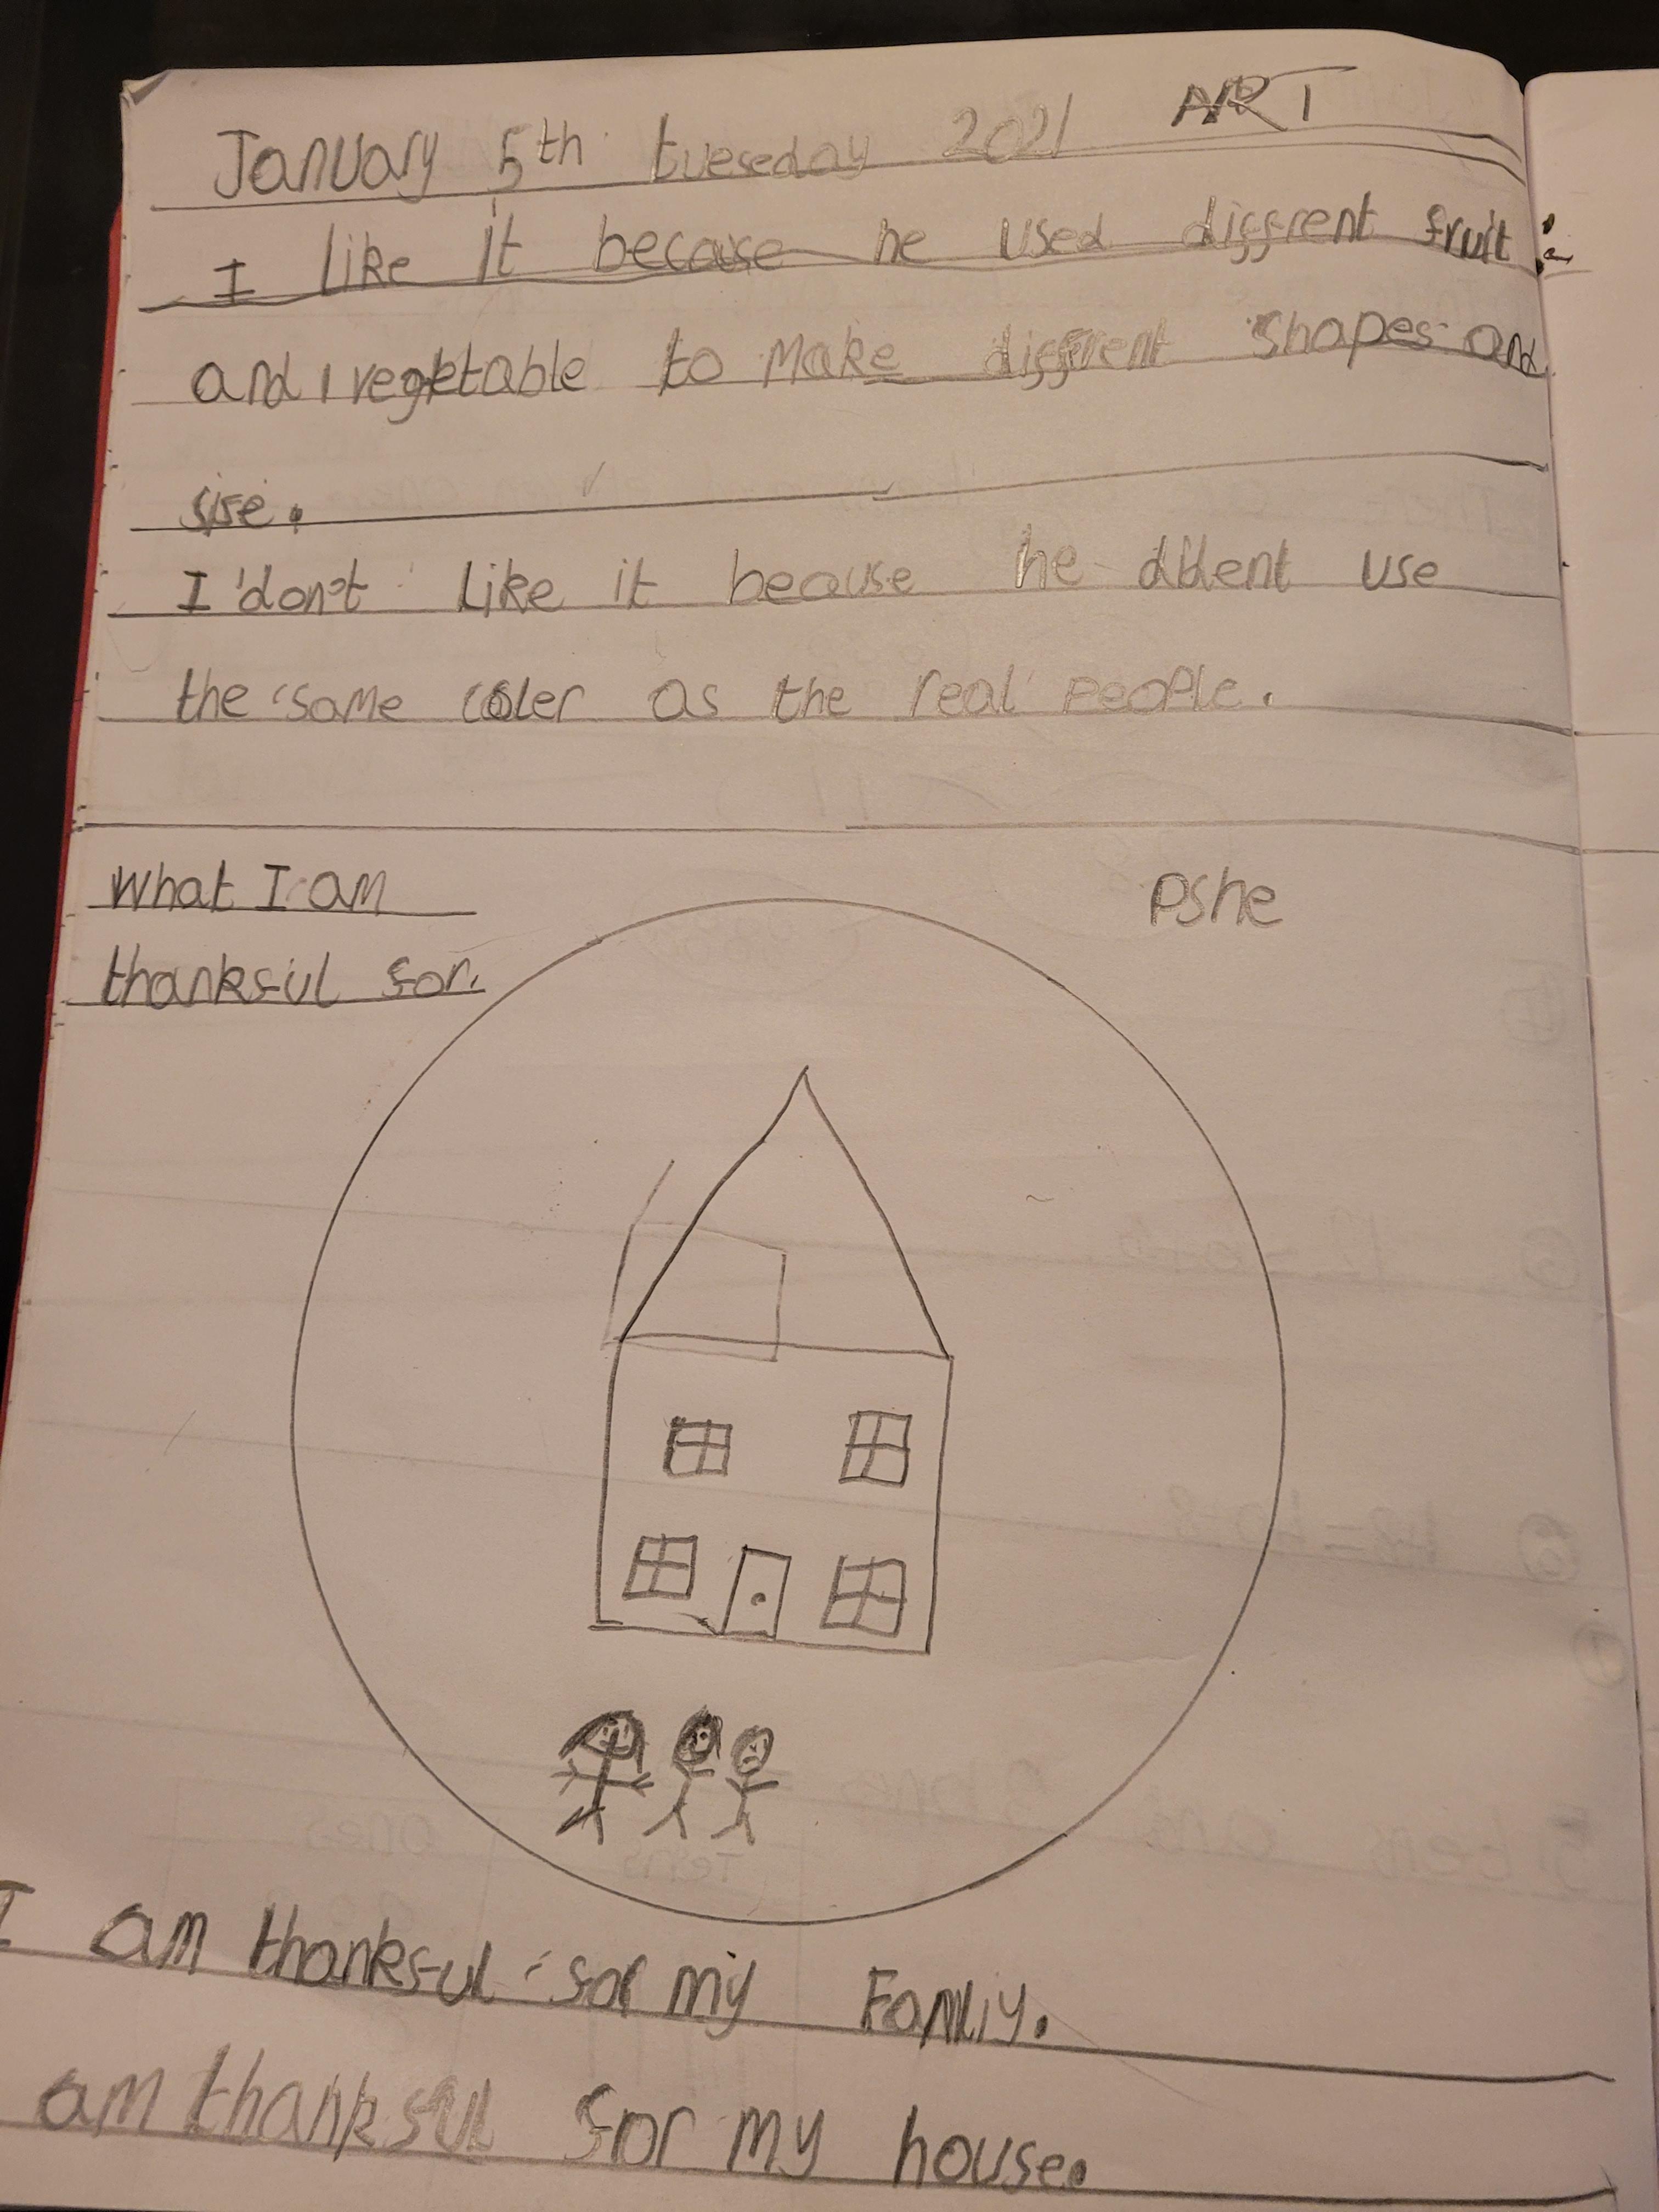 January 5th tueseday 2021 ART
I like it because he used diffrent fruit
and vegetable to make diffrent shapes and
sise.
I don't like it beause he dident use
the same coler as the real people.
What I am
thankful for.
PShe
I am thankful for my Famliy.
am thankful for my house.